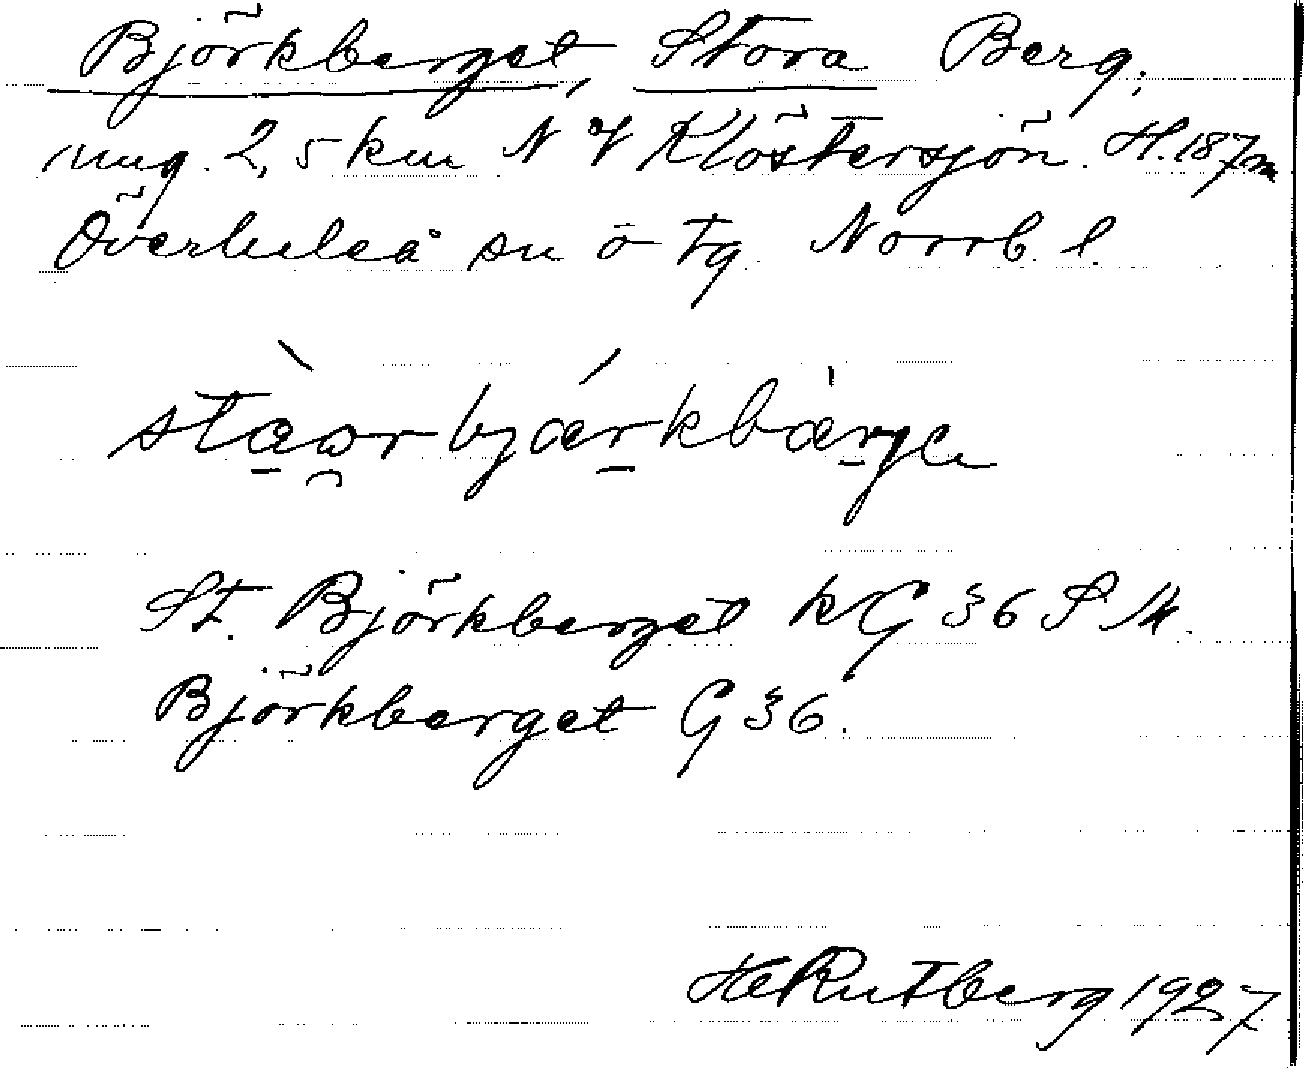 Björkberget, Stora Berg,
ung. 2,5 km N V Klöstersjön. H. 187 m
Överluleå sn ö tg. Norrb. l.
St. Björkberget k G 36 S 14.
Björkberget G 36.
HeRutberg 1927